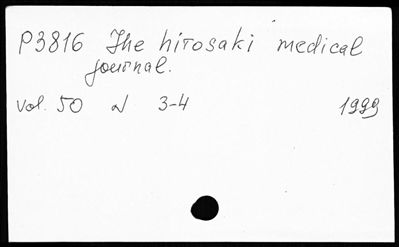 P3816 The hirosaki medical
journal.
Vol. 50 N 3-4 1999